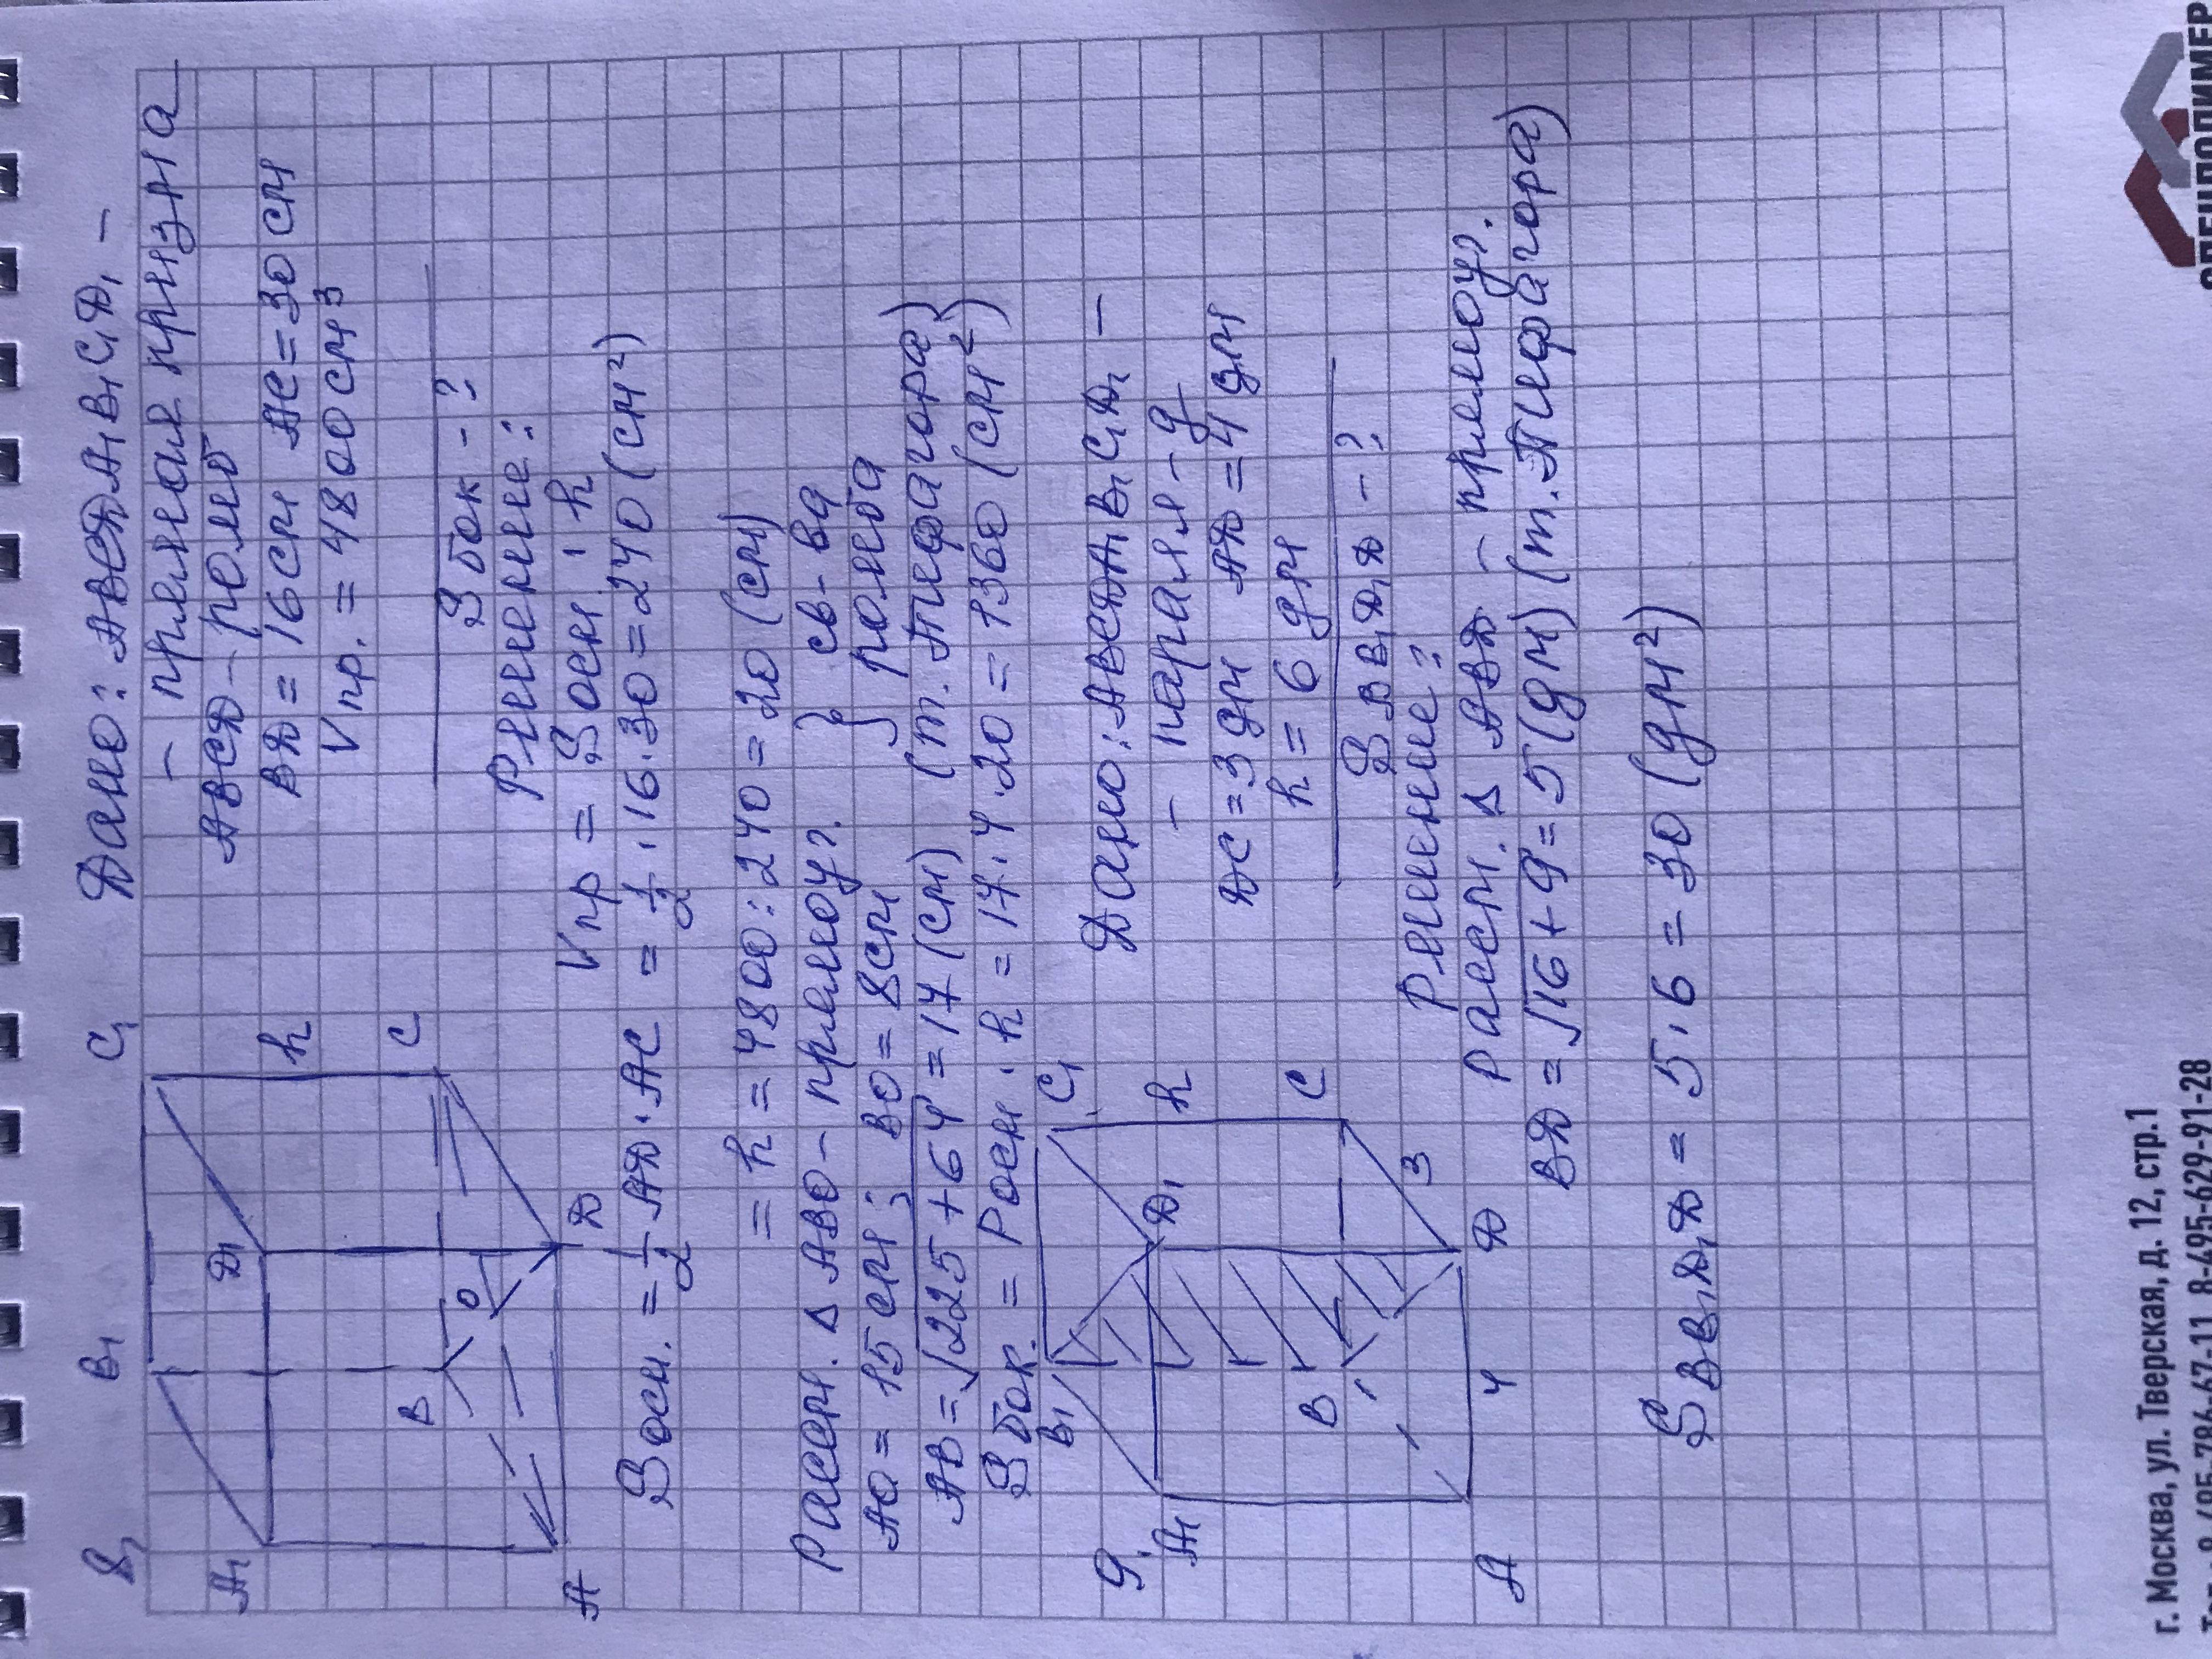 8.
A₁ B₁ C₁ D₁
h
A B C D
O
Дано: ABCDA₁B₁C₁D₁ –
– прямая призма
ABCD – ромб
BD = 16 см AC = 30 см
Vпр. = 4800 см³
Sбок – ?
Решение:
Vпр = Sосн. · h
Sосн. = 1/2 AD · AC = 1/2 · 16 · 30 = 240 (см²)
= h = 4800 : 240 = 20 (см)
Рассм. Δ ABO – прямоуг. } св-ва
AO = 15 см; BO = 8 см } ромба
AB = √225 + 64 = 17 (см) (т. Пифагора)
Sбок. = Pосн. · h = 17 · 4 · 20 = 1360 (см²)
9.
A₁ B₁ C₁ D₁
h
A B C D
4 3
Дано: ABCDA₁B₁C₁D₁ –
– паралл-д
DC = 3 дм AD = 4 дм
h = 6 дм
SBB₁D₁D – ?
Решение:
Рассм. Δ ABD – прямоуг.
BD = √16 + 9 = 5 (дм) (т. Пифагора)
SBB₁D₁D = 5 · 6 = 30 (дм²)
г. Москва, ул. Тверская, д. 12, стр.1
8-495-629-91-28